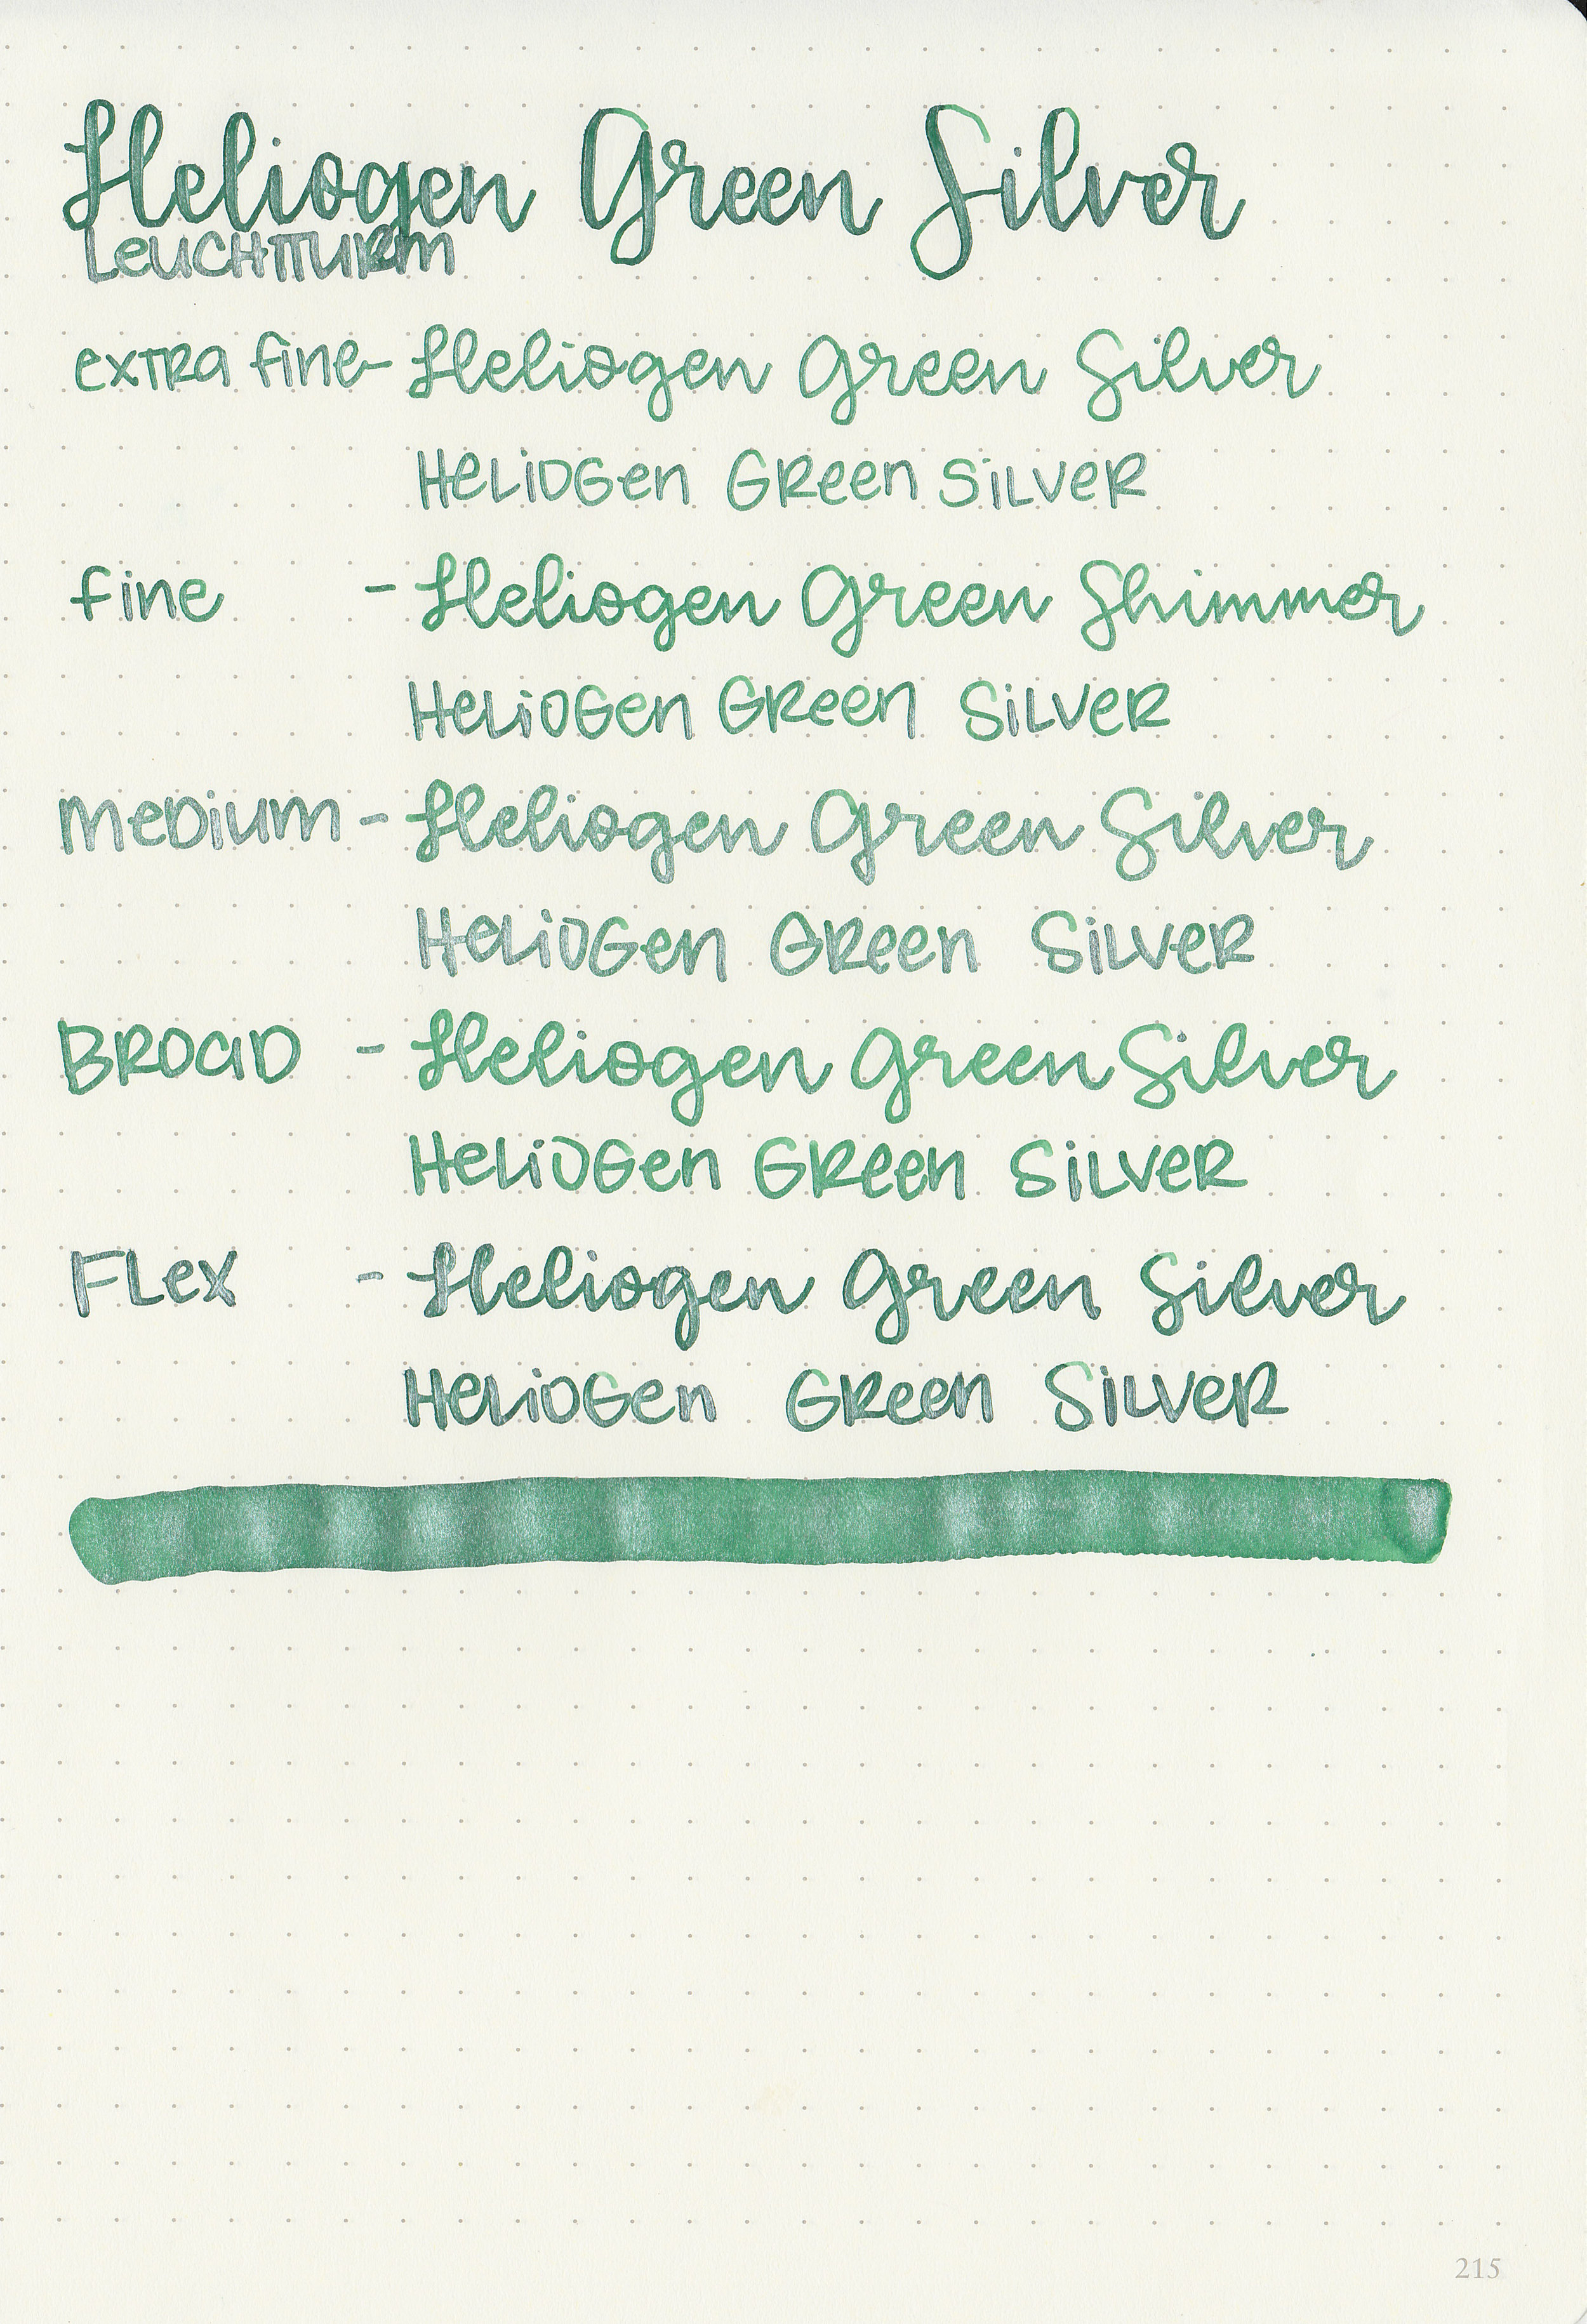 Heliogen Green Silver
Leuchtturm
extra fine - Heliogen Green Silver
Heliogen Green Silver
fine - Heliogen Green Shimmer
Heliogen Green Silver
Medium - Heliogen Green Silver
Heliogen Green Silver
Broad - Heliogen Green Silver
Heliogen Green Silver
Flex - Heliogen Green Silver
Heliogen Green Silver
215